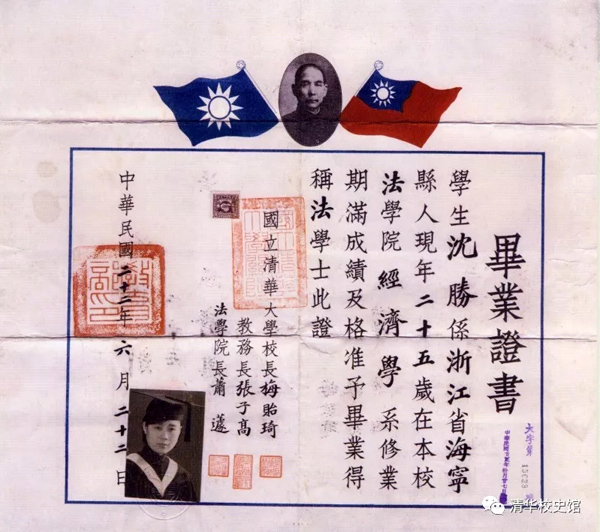 畢業證書
學生沈勝係浙江省海寧
縣人現年二十五歲在本校
法學院經濟學系修業
期滿成績及格准予畢業得
稱法學士此證
國立清華大學校長梅貽琦
教務長張子高
法學院長蕭蘧
中華民國二十二年六月二十二日
清华校史馆